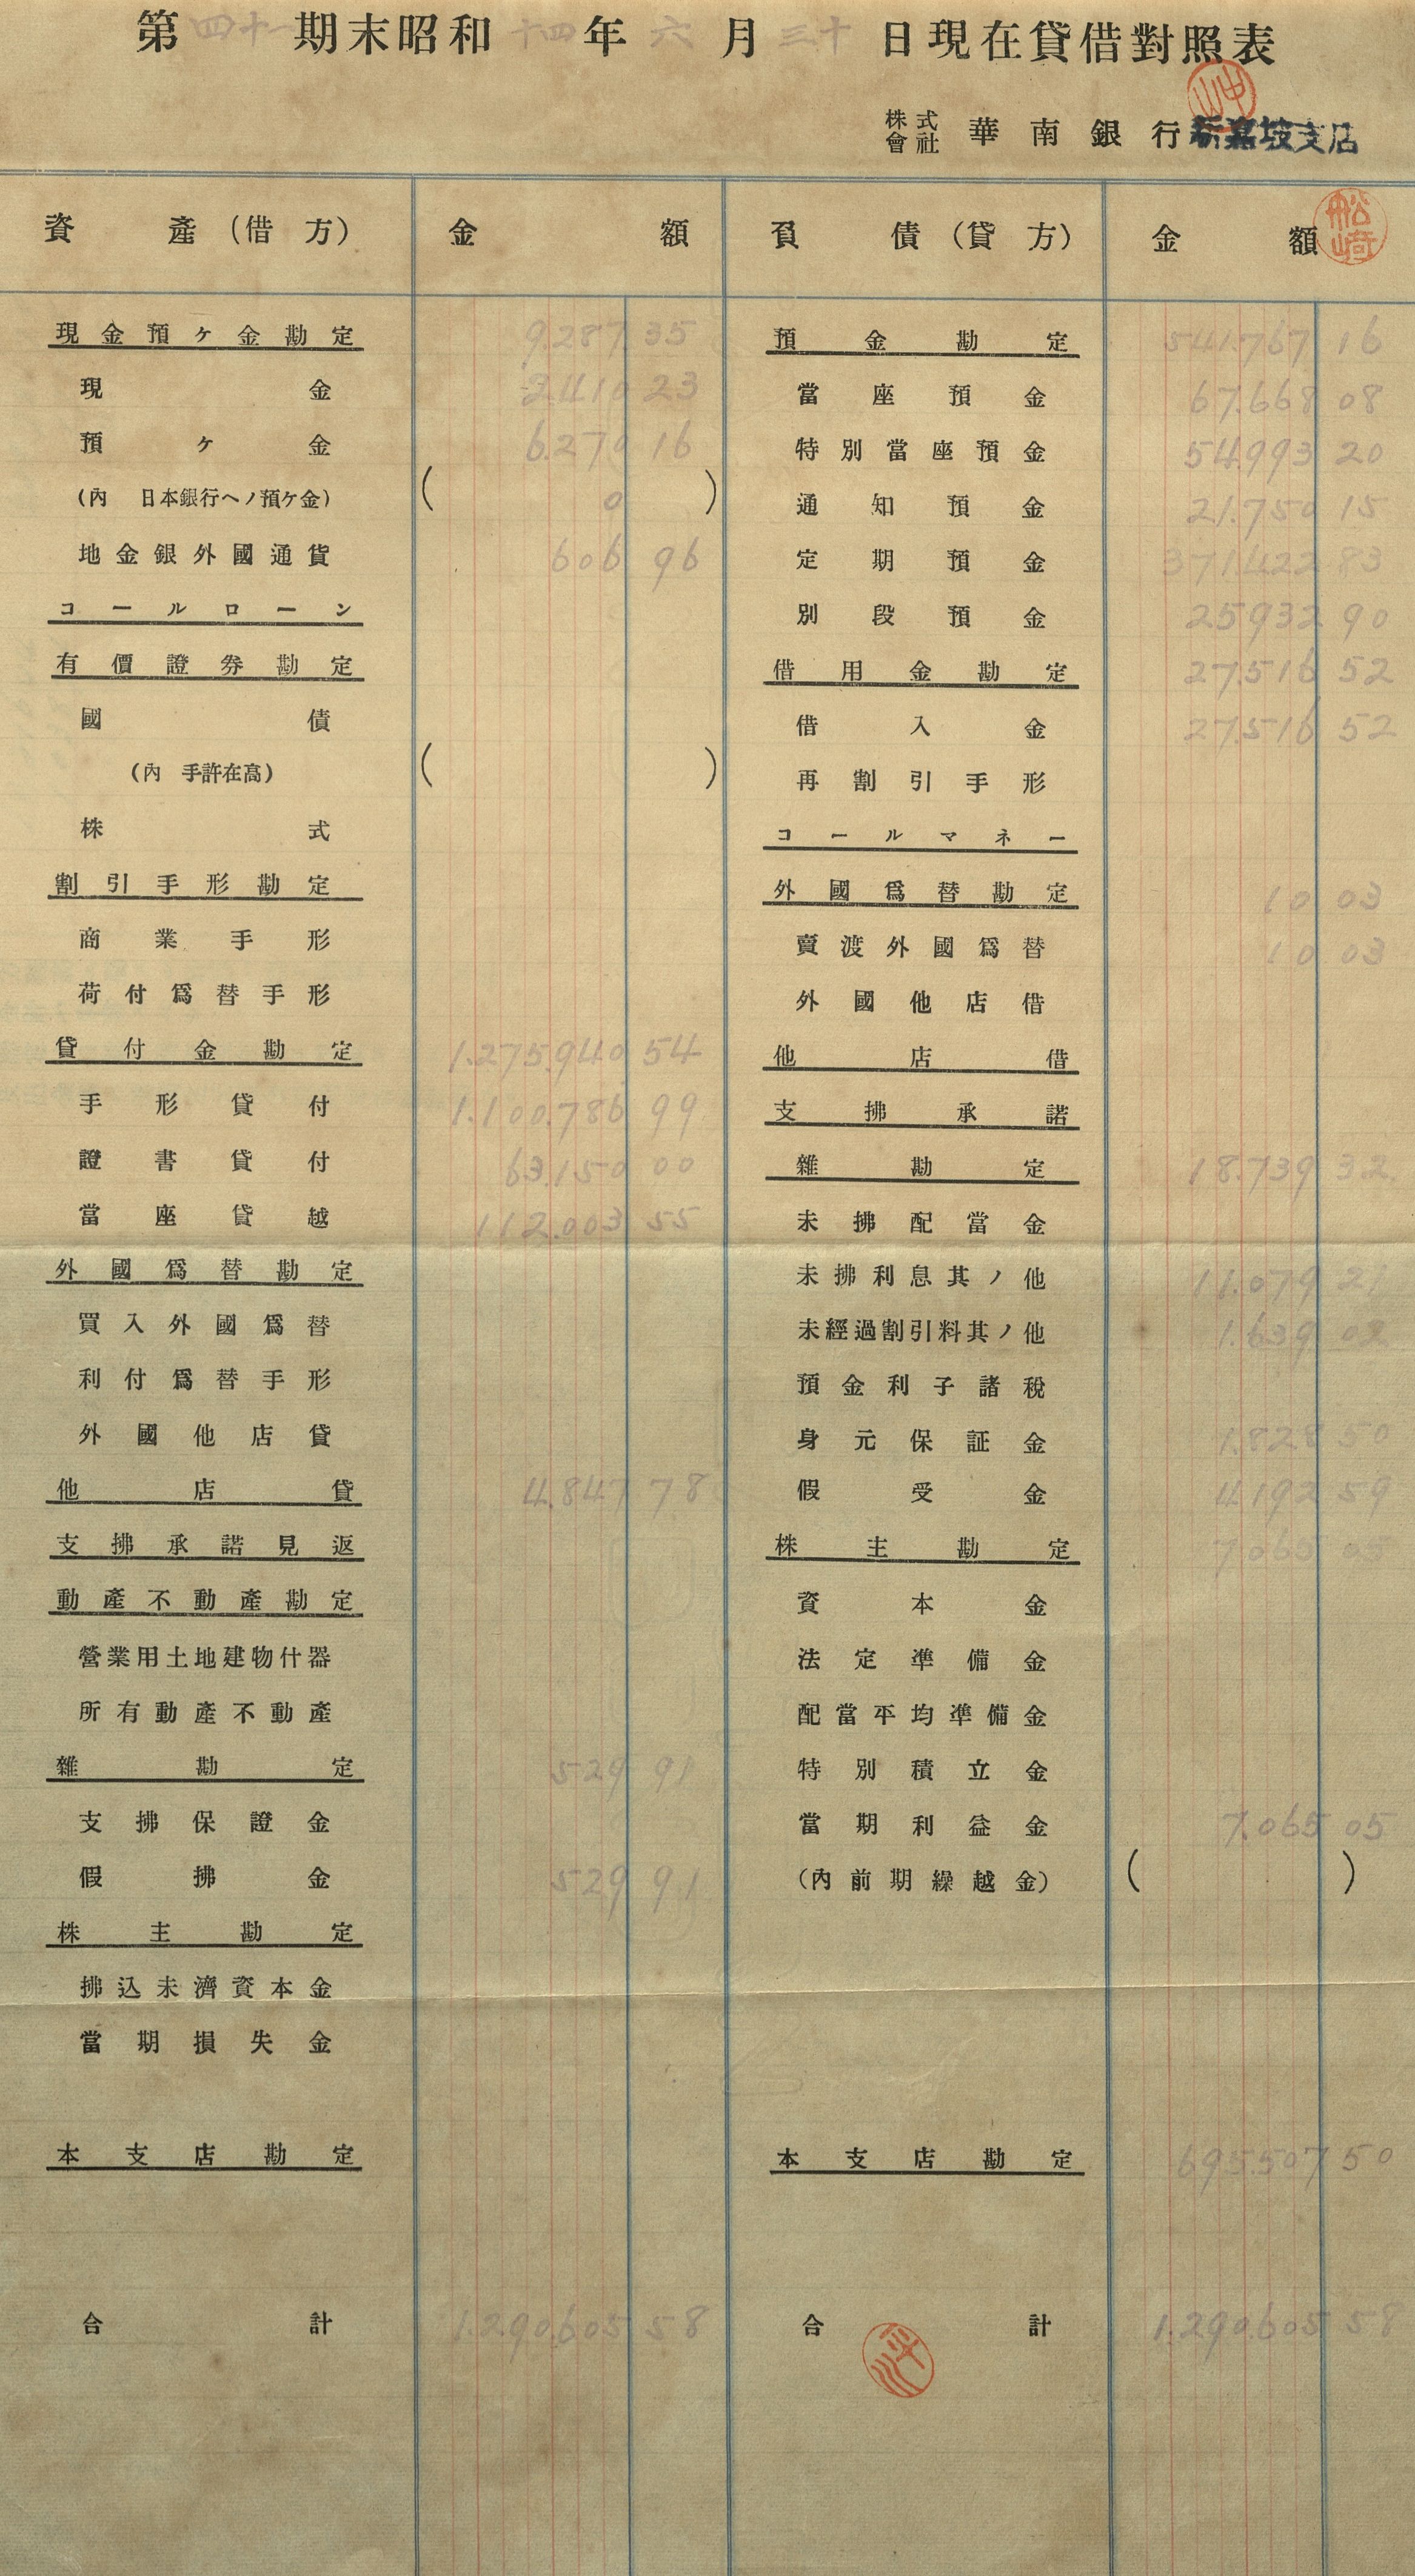 第四十一期末昭和十四年六月三十日現在貸借對照表
株式會社 華南銀行新嘉坡支店
資產(借方) 金額
現金預ケ金勘定 9.287 35
現金 2.410 23
預ケ金 6.270 16
(內 日本銀行ヘノ預ケ金) ( 0 )
地金銀外國通貨 606 96
コールローン
有價證券勘定
國債
(內 手許在高) ( )
株式
割引手形勘定
商業手形
荷付爲替手形
貸付金勘定 1.275.940 54
手形貸付 1.100.786 99
證書貸付 63.150 00
當座貸越 112.003 55
外國爲替勘定
買入外國爲替
利付爲替手形
外國他店貸
他店貸 4.847 78
支拂承諾見返
動產不動產勘定
營業用土地建物什器
所有動產不動產
雜勘定 529 91
支拂保證金
假拂金 529 91
株主勘定
拂込未濟資本金
當期損失金
本支店勘定
合計 1.290.605 58
負債(貸方) 金額
預金勘定 541.767 16
當座預金 67.668 08
特別當座預金 54.993 20
通知預金 21.750 15
定期預金 371.422 83
別段預金 25.932 90
借用金勘定 27.516 52
借入金 27.516 52
再割引手形
コールマネー
外國爲替勘定 10 03
賣渡外國爲替 10 03
外國他店借
他店借
支拂承諾
雜勘定 18.739 32
未拂配當金
未拂利息其ノ他 11.079 21
未經過割引料其ノ他 1.639 02
預金利子諸稅
身元保証金 1.828 50
假受金 4.192 59
株主勘定 7.065 05
資本金
法定準備金
配當平均準備金
特別積立金
當期利益金 7.065 05
(內前期繰越金) ( )
本支店勘定 695.507 50
合計 1.290.605 58